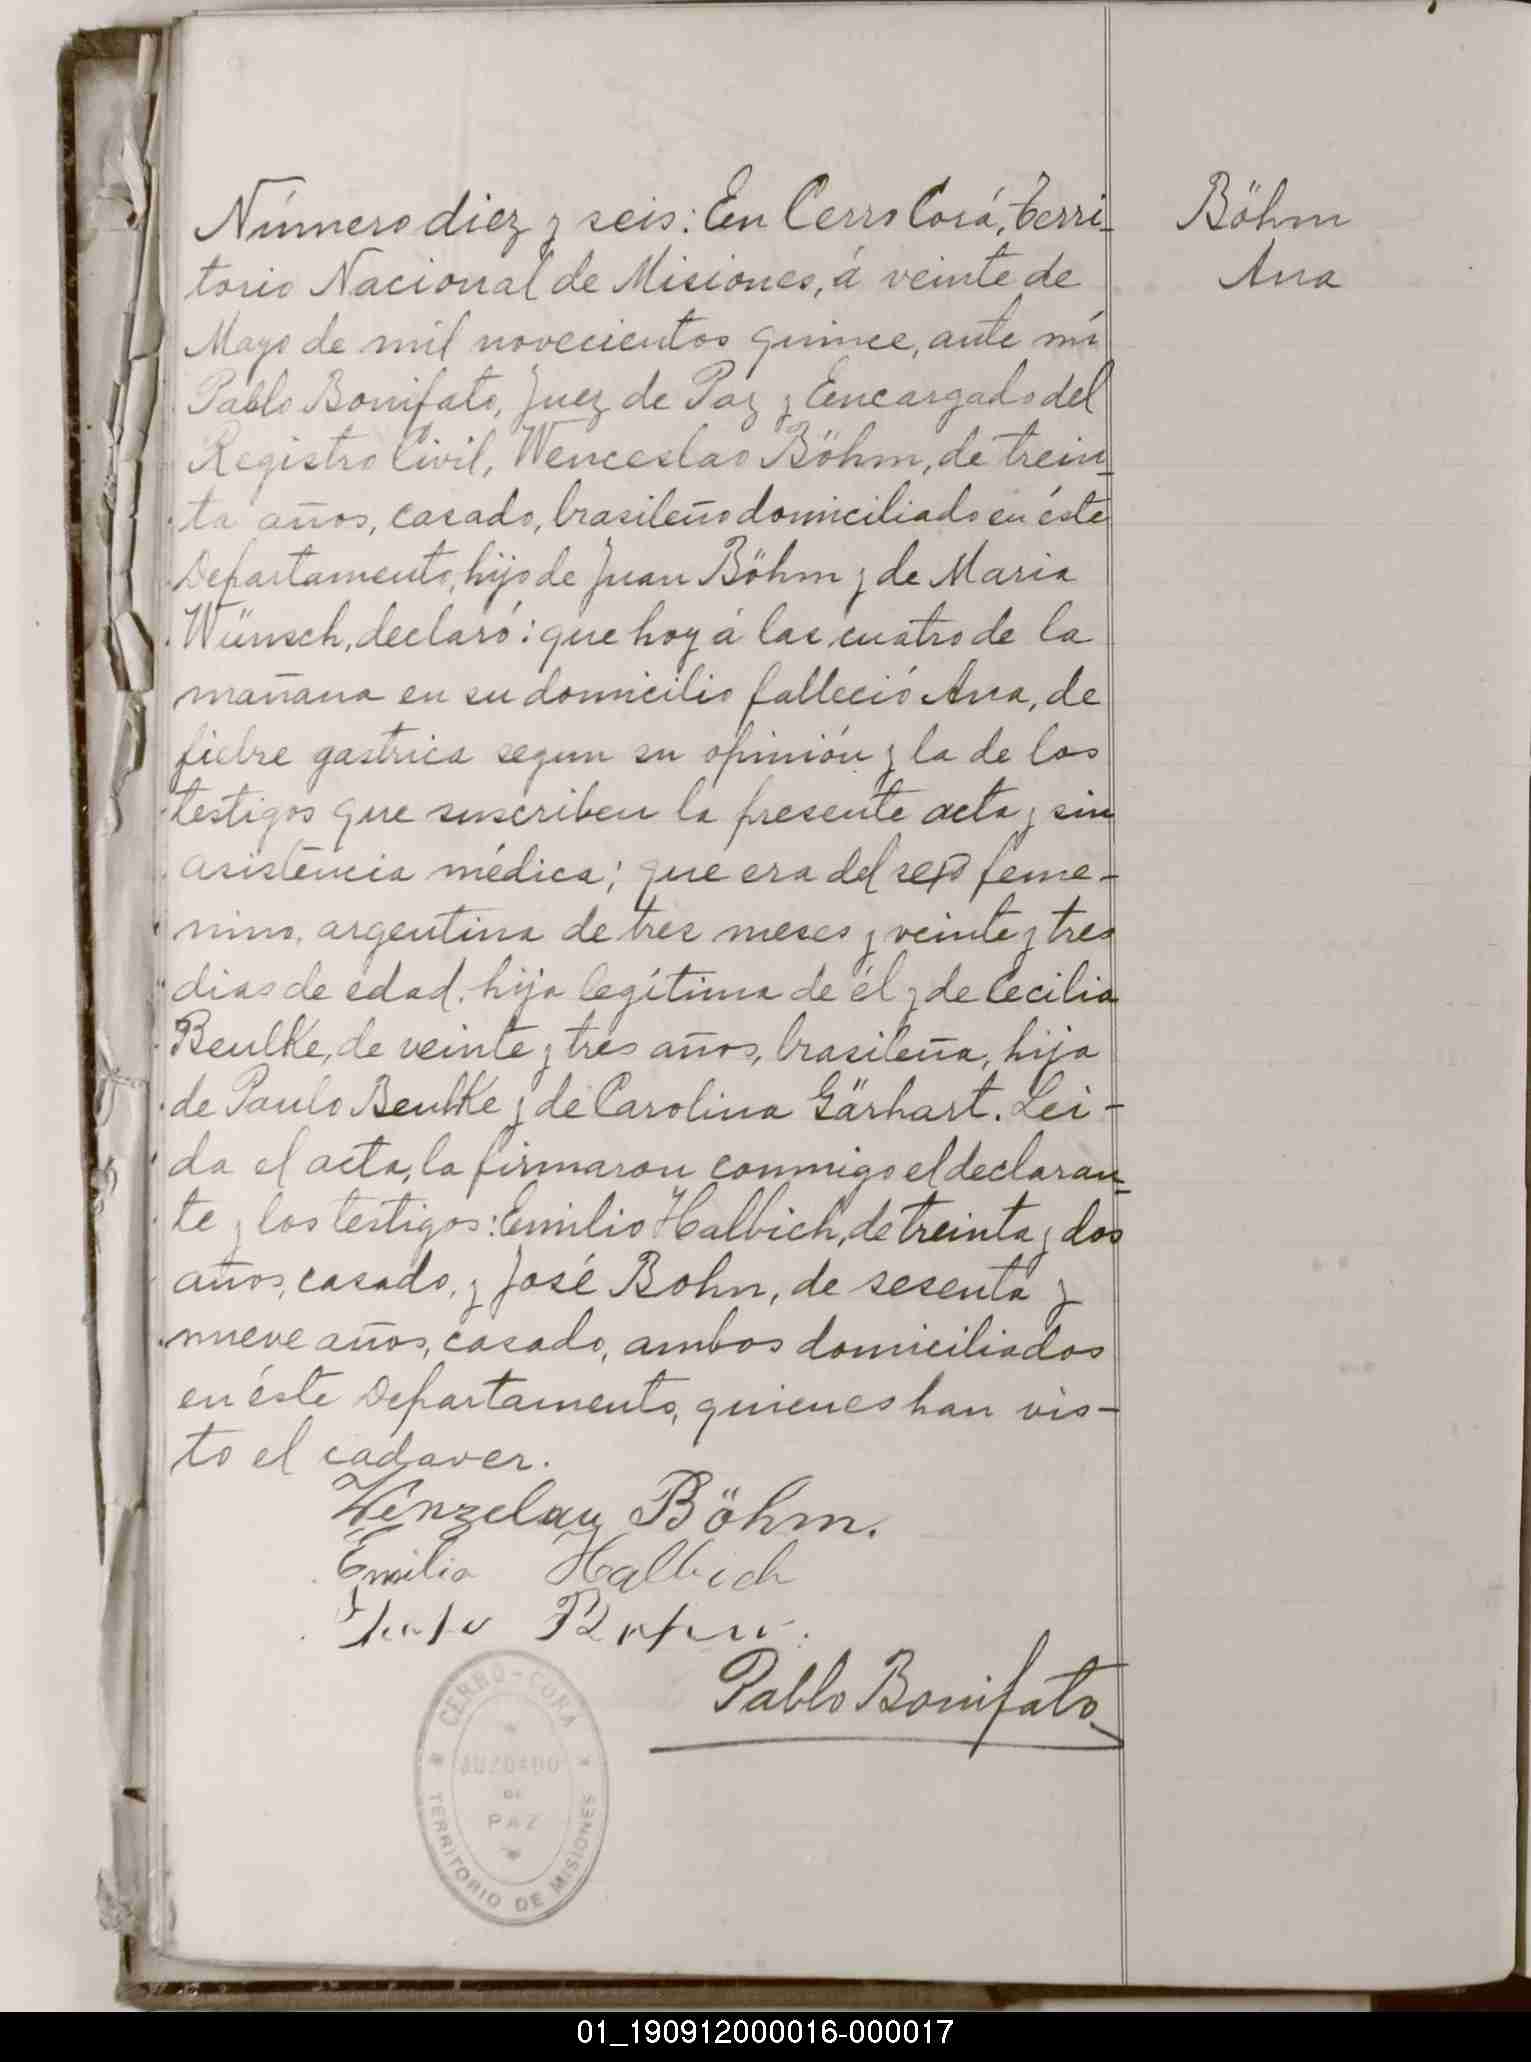 Número diez y seis: En Cerro Corá, Terri-
torio Nacional de Misiones, á veinte de
Mayo de mil novecientos quince, ante mí
Pablo Bonifato, Juez de Paz y Encargado del
Registro Civil, Wenceslao Böhm, de trein-
ta años, casado, brasileño domiciliado en éste
Departamento, hijo de Juan Böhm y de Maria
Wünsch, declaró: que hoy á las cuatro de la
mañana en su domicilio falleció Ana, de
fiebre gastrica segun su opinión y la de los
testigos que suscriben la presente acta y sin
asistencia médica; que era del sexo feme-
nino, argentina de tres meses y veinte y tres
dias de edad, hija legítima de él y de Cecilia
Beulke, de veinte y tres años, brasileña, hija
de Paulo Beulke y de Carolina Gärhart. Lei-
da el acta, la firmaron conmigo el declaran-
te y los testigos: Emilio Halbich, de treinta y dos
años, casado, y José Bohn, de sesenta y
nueve años, casado, ambos domiciliados
en éste Departamento, quienes han vis-
to el cadaver.
Wenzelau Böhm.
Emilio Halbich
Pablo Bonifato
Böhm
Ana
CERRO-CORA
JUZGADO
DE
PAZ
TERRITORIO DE MISIONES
01_190912000016-000017